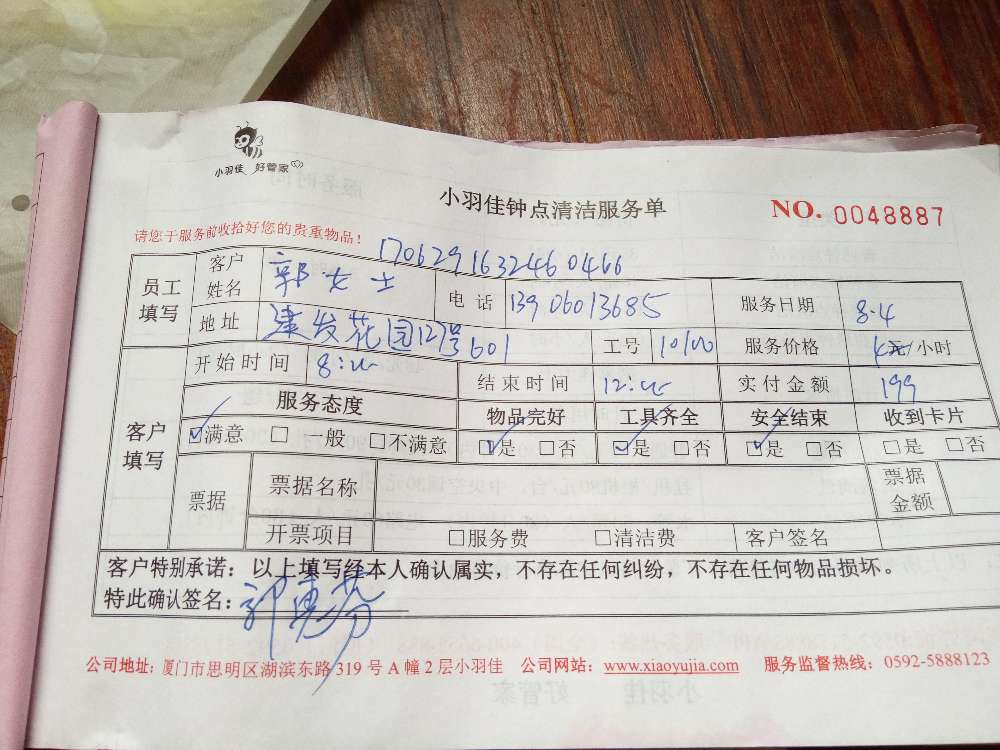 小羽佳 好管家
小羽佳钟点清洁服务单
NO. 0048887
请您于服务前收拾好您的贵重物品！
1706291632460466
员工填写 客户姓名 郭女士 电话 13906013685 服务日期 8.4
地址 建发花园127号601 工号 服务价格 元/小时
客户填写 开始时间 8: 结束时间 12: 实付金额 199
服务态度 物品完好 工具齐全 安全结束 收到卡片
☑满意 □一般 □不满意 ☑是 □否 ☑是 □否 ☑是 □否 □是 □否
票据 票据名称 票据金额
开票项目 □服务费 □清洁费 客户签名
客户特别承诺：以上填写经本人确认属实，不存在任何纠纷，不存在任何物品损坏。
特此确认签名：郭惠芬
公司地址：厦门市思明区湖滨东路319号A幢2层小羽佳 公司网站：www.xiaoyujia.com 服务监督热线：0592-5888123